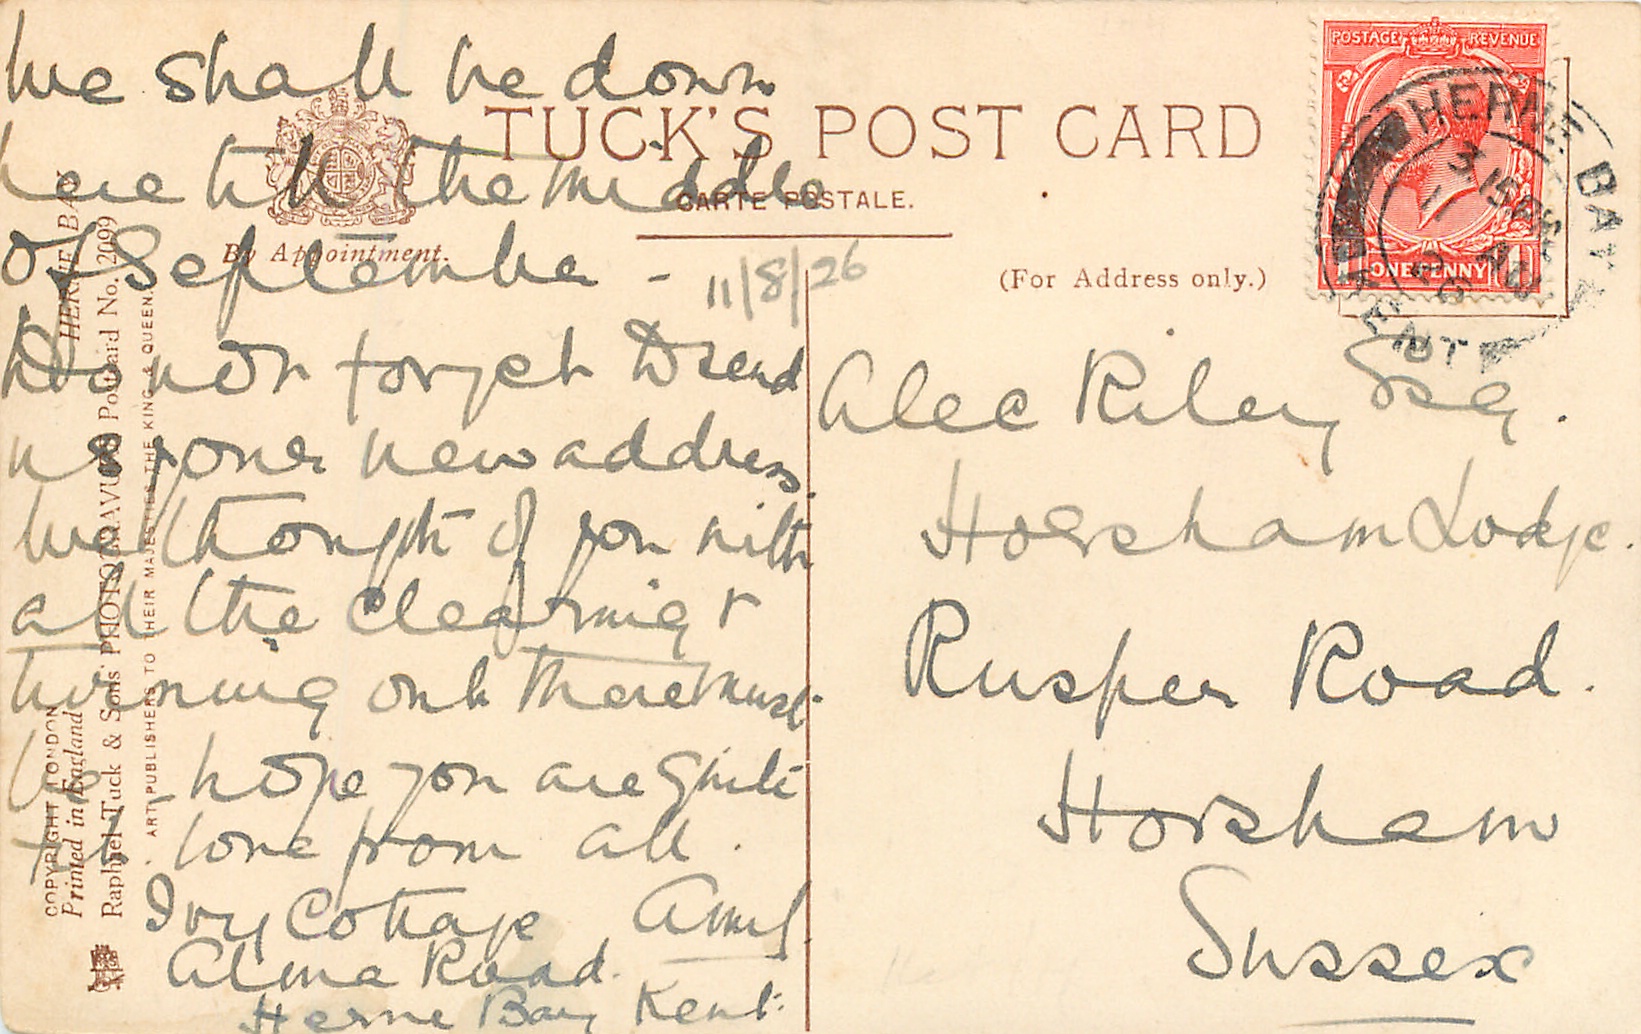 We shall be down
here till the middle
of September -
11/8/26
Do not forget to send
us your new address
We thought of you with
all the clearing &
turning out there must
be - hope you are quite
fit. love from all.
Amy.
Ivy Cottage
Alma Road.
Herne Bay Kent.
TUCK'S POST CARD
CARTE POSTALE.
By Appointment.
(For Address only.)
POSTAGE REVENUE
ONE PENNY
HERNE BAY
KENT
3 15 PM
11 AU
26
Alec Riley Esq.
Horsham Lodge.
Rusper Road.
Horsham
Sussex
HERNE BAY
Raphael Tuck & Sons' PHOTOGRAVURE Postcard No. 2099
ART PUBLISHERS TO THEIR MAJESTIES THE KING & QUEEN.
COPYRIGHT LONDON
Printed in England